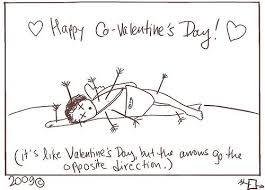 Happy Co-Valentine's Day!
(it's like Valentine's Day, but the arrows go the
opposite direction.)
2009©